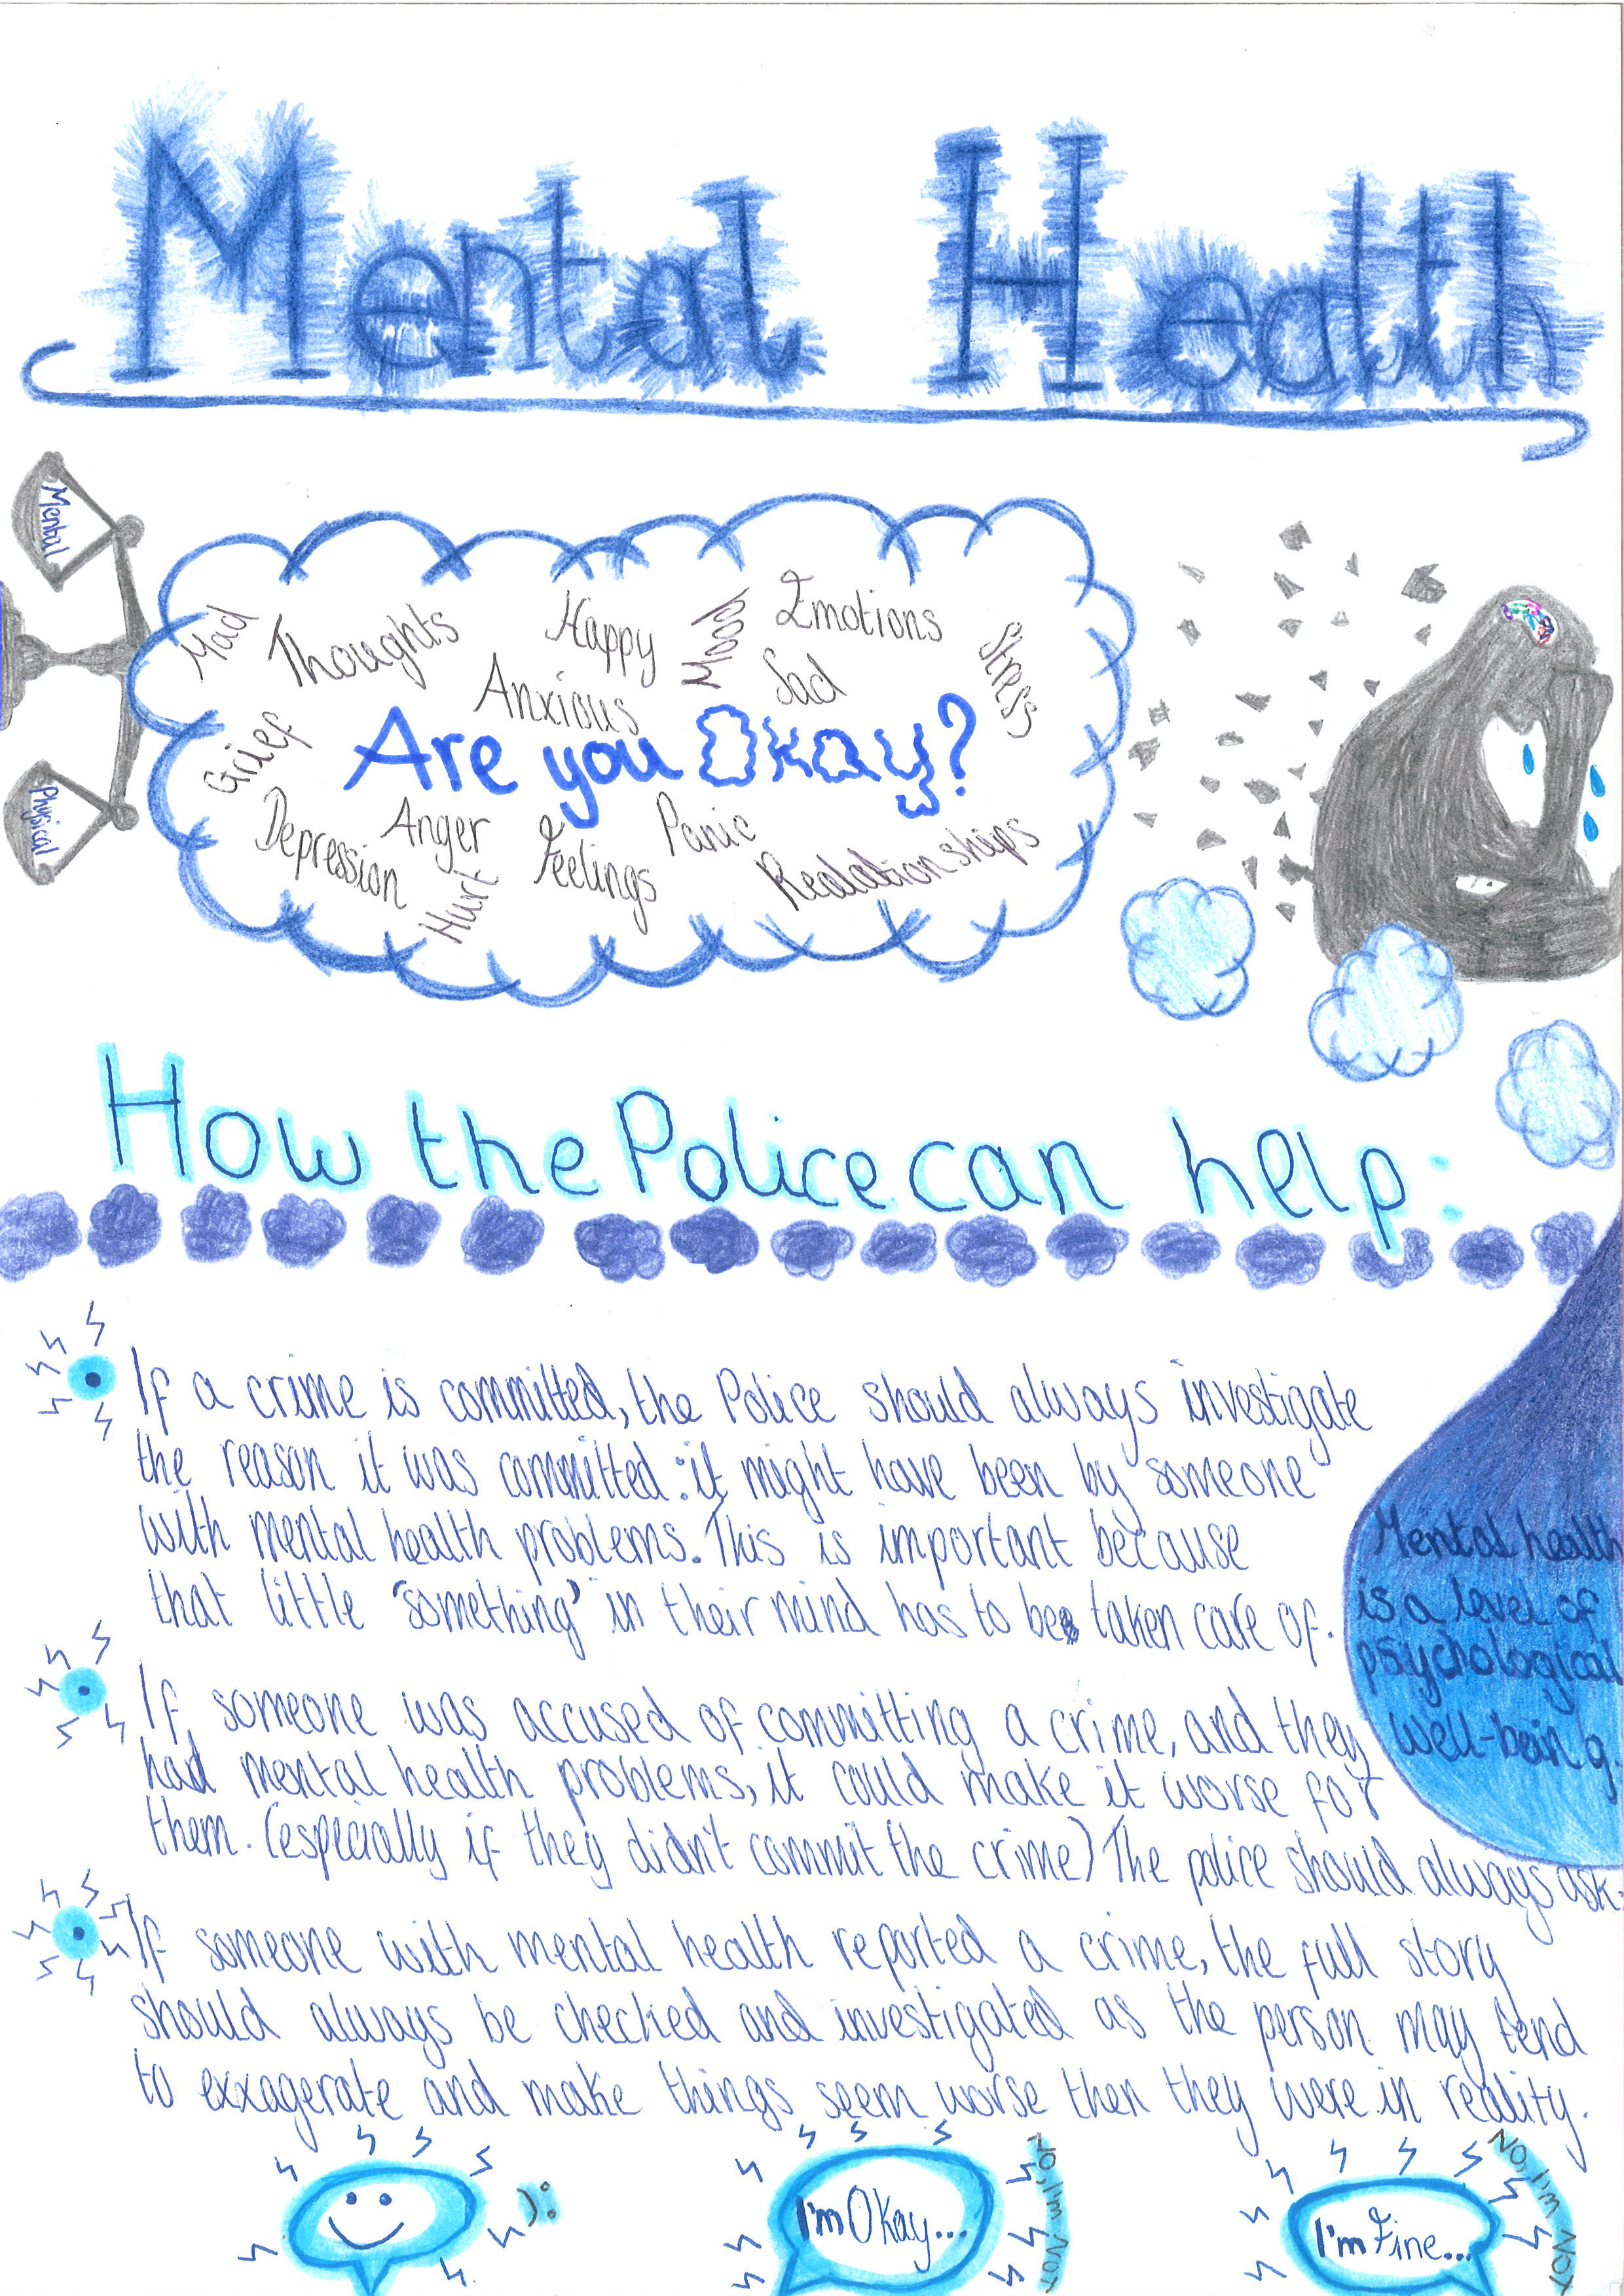 Mental Health
Mental
Physical
Mad
Thoughts
Happy
Mood
Emotions
Stress
Anxious
Sad
Grief
Are you Okay?
Depression
Anger
Hurt
Feelings
Panic
Realationships
How the Police can help:
If a crime is committed, the Police should always investigate
the reason it was committed: it might have been by someone
with mental health problems. This is important because
that little 'something' in their mind has to be taken care of.
If someone was accused of committing a crime, and they
had mental health problems, it could make it worse for
them. (especially if they didn't commit the crime) The police should always ask.
If someone with mental health reported a crime, the full story
should always be checked and investigated as the person may tend
to exxagerate and make things seem worse then they were in reality.
Mental health
is a level of
psychological
well-being
):
I'm Okay...
No, I'm NOT
I'm Fine...
No, I'm NOT